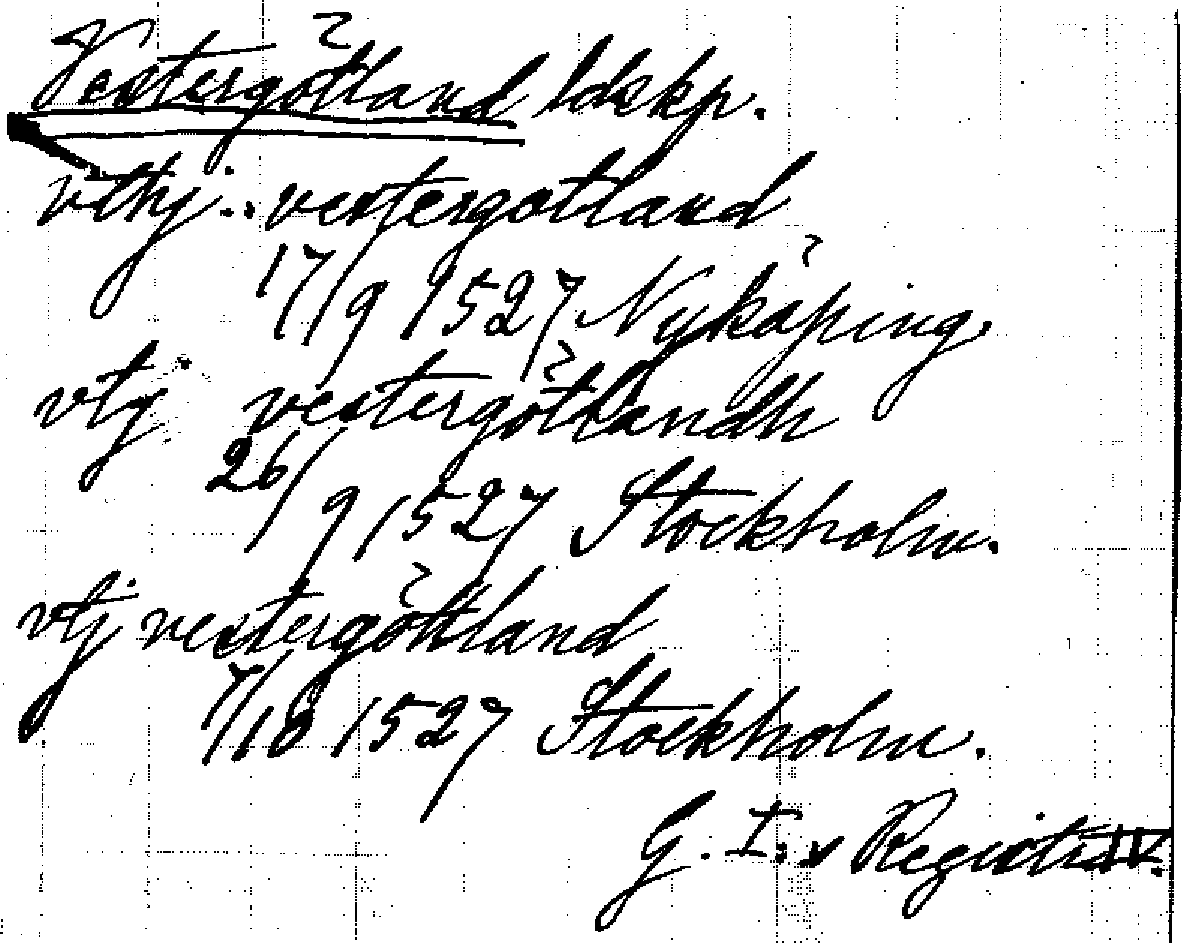 Vestergötland ldskp.
vthj.. vestergotland
17/9 1527 Nyköping.
vtij vestergötlandh
26/9 1527 Stockholm.
vtj vestergöttland
7/10 1527 Stockholm.
G. I:s Registr. IV.